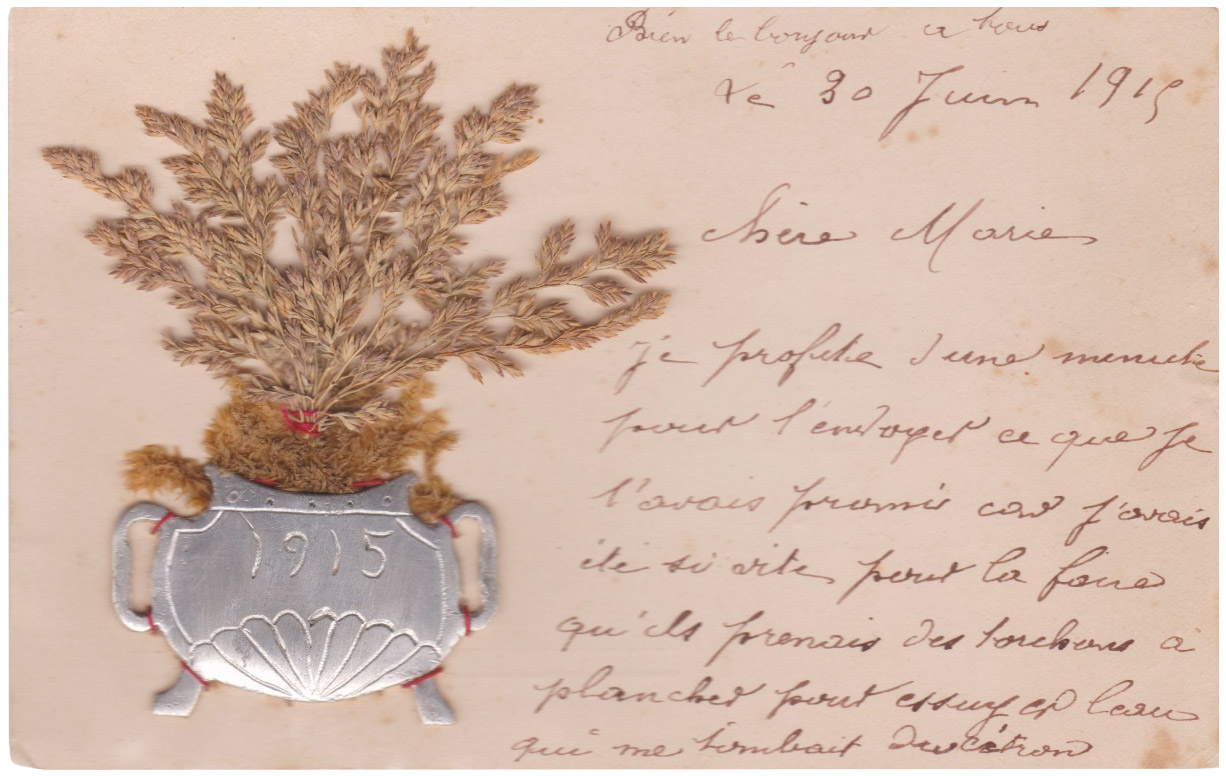 Bien le bonjour a tous
Le 30 Juin 1915
Chère Marie
je profite d'une minute
pour t'envoyer ce que je
t'avais promis car j'avais
été si vite pour la faire
qu'ils prenais des torchons a
plancher pour essuyer leau
qui me tombait du citron
1915